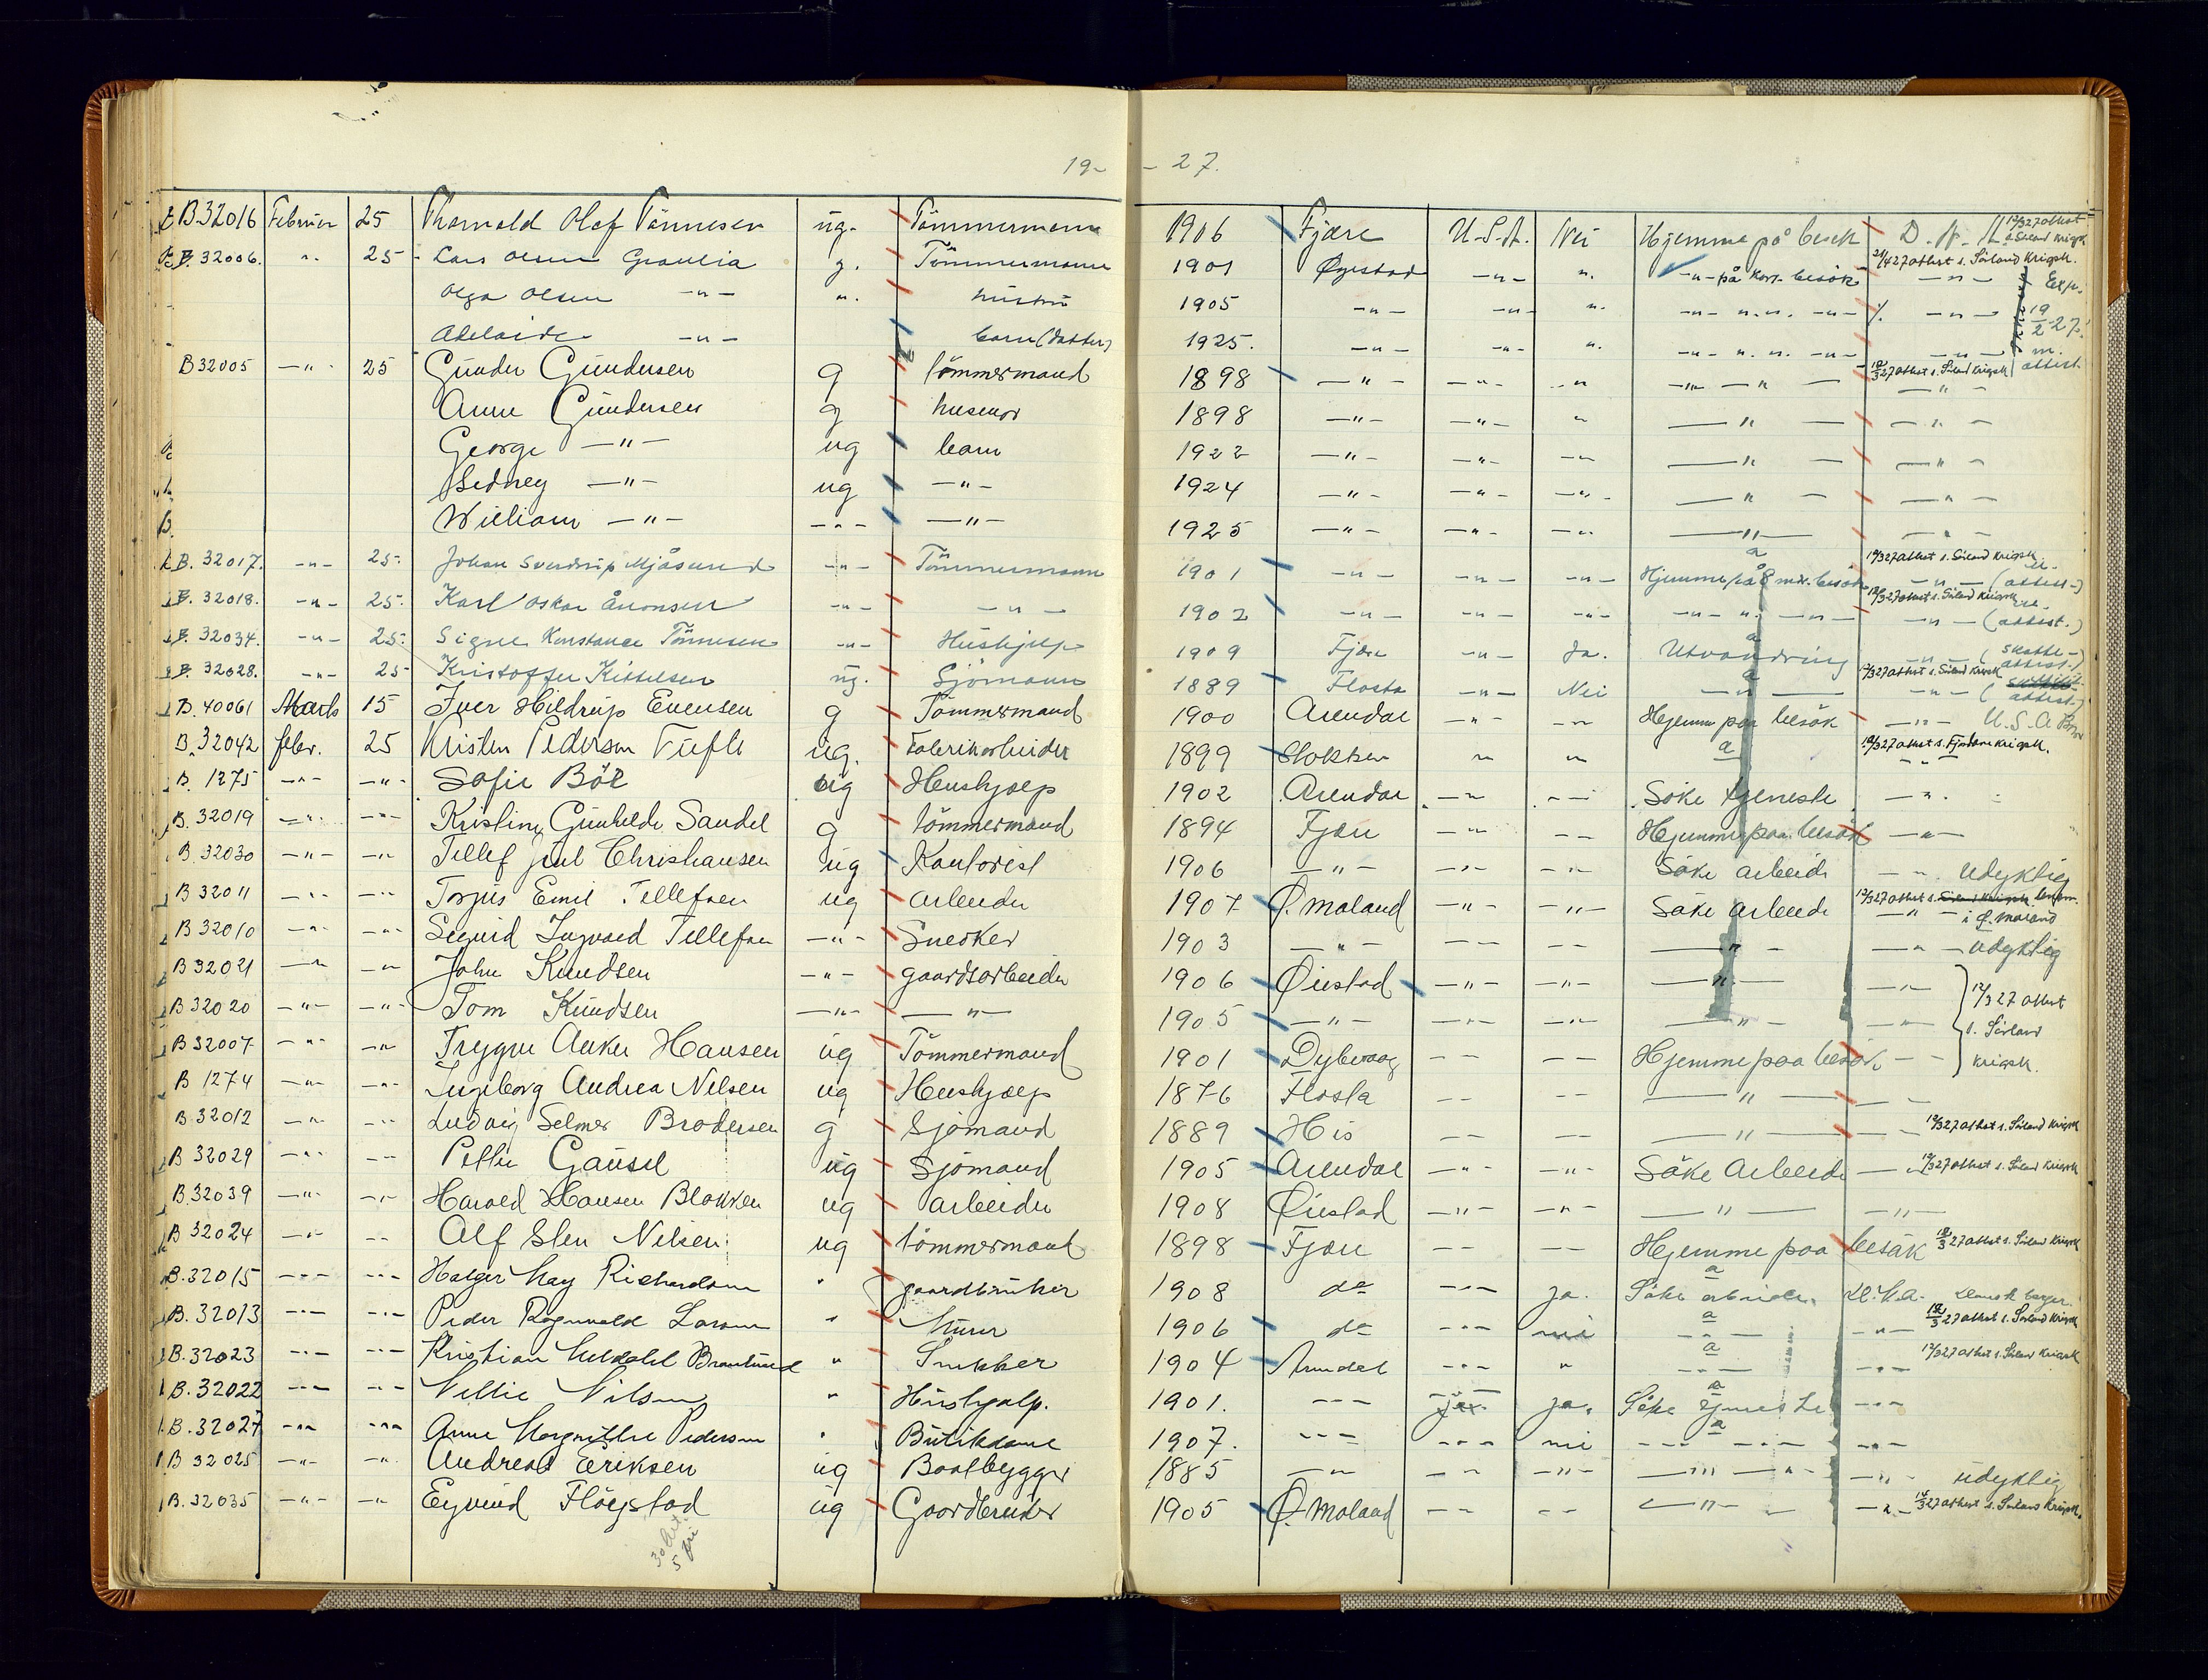 19- - 27.
B 32016 Februar 25 Thorvald Olaf Tönnesen ug. Tömmermann 1906 Fjære U.S.A. Nei Hjemme på besøk
B. 32006. " 25 Lars Olsen g. Tömmermann 1901 Øyestad -"- ". -"- på kort besök -"-
Olga Olsen -"- ". hustru 1905 -"- -"- ". -"- ". ". -"- -"-
Adelaide -"- barn (datter) 1925. -"- -"- ". -"- ". ". -"- -"-
B 32005 -"- 25 Gunder Gundersen g tömmermand 1898 -"- -"- " -"- -"-
Anne Gundersen g husmor 1898 -"- -"- " -"- -"-
George -"- ug barn 1922 -"- -"- -"- -"- -"-
Sidney -"- ug -"- 1924 -"- -"- -"- -"- -"-
William -"- -"- -"- 1925 -"- -"- -"- -"- -"-
B. 32017. -"- 25. Johan Sverdrup Mjåsund -"- Tömmermann 1901 -"- -"- -"- Hjemme på 8 mdr. besök -"- (attest.)
B. 32018. -"- 25. Karl Oskar Aronsen -"- -"- 1902 -"- -"- -"- -"- ". -"- -"- (attest.)
B. 32034. -"- 25. Signe Konstance Tönnesen -"- Hushjelp 1909 Fjære -"- Ja. Utvandring -"- (skatte-attest.)
B. 32028. -"- 25 Kristoffer Kittelsen ug. Sjömann 1889 Flosta -"- Nei -"- -"- (attest.)
B. 40061 Marts 15 Iver Hildrup Evensen g Tömmermand 1900 Arendal -"- -"- Hjemme paa besök -"- U.S.A.
B. 32042 febr. 25 Kristen Pedersen Tufte ug. Fabrikarbeider 1899 Stokken " " " -"-
B. 1275 -"- -"- Sofie Böe ug Hushjælp 1902 Arendal -"- -"- Söke tjeneste -"-
B. 32019 -"- -"- Kristine Gunhilde Sandel g tömmermand 1894 Fjære -"- -- Hjemme paa besök -"-
B. 32030 -"- -"- Tellef Juul Christiansen ug Kontorist 1906 -"- -"- -"- Söke arbeide -"- udyktig
B 32011 -"- -"- Torjus Emil Tellefsen ug arbeider 1907 Ø. Moland -"- -"- Söke arbeide -"- i Ø. Moland
B 32010 -"- -"- Sigurd Ingvald Tellefsen -"- Snedker 1903 -"- -- -- -"- -"- udyktig
B 32021 -"- -"- John Knudsen -"- gaardsarbeider 1906 Øiestad -"- -"- -"- -"-
B 32020 -"- -"- Tom Knudsen -"- -"- 1905 -"- -"- -"- -"- -"- 12/3 27 attest s. Sörland krigsk.
B 32007 -"- -"- Trygve Anker Hansen ug Tömmermand 1901 Dybvaag -- -- Hjemme paa besök --
B 1274 -"- -"- Ingeborg Andrea Nilsen ug Hushjælp 1876 Flosta -- -- -"- --
B 32012 -"- -"- Ludvig Selmer Brodersen g Sjömand 1889 His -- -- -"- -- 12/3 27 attest s. Sörland krigsk
B 32029 -"- -- Petter Gausel ug Sjömand 1905 Arendal -"- -"- Söke Arbeide -"- 12/3 27 attest s. Sörland krigsk
B. 32039 -"- -"- Harald Hansen Blokken ug arbeider 1908 Øiestad -"- -"- -"- -"-
B 32024 -"- -- Alf Sten Nilsen ug tömmermand 1898 Fjære -- -- Hjemme paa besök 12/3 27 attest s. Sörland krigsk
B. 32015 -"- -"- Holger May Richardson " gaardbruker 1908 do -"- ja. Söke arbeide. Dansk borger.
B. 32013 -"- -"- Peder Ragnvald Larsen " Murer 1906 do -"- nei -"- -"- 12/3 27 attest s. Sörland krigsk
B. 32023 -"- -"- Kristian " Snekker 1904 Arendal -"- " -"- -"- 12/3 27 attest s. Sörland krigsk
B. 32022 -"- -"- Nellie Nilsen " Hushjælp. 1901. -"- ja. Söke tjeneste -"-
B. 32027 -"- -"- Anne Margrethe Pedersen " Butikdame 1907. -"- -"- nei -"- -"- -"-
B 32025 -"- -"- Andreas Eriksen ug Baatbygger 1885 -"- -- -"- -"- -"- -"- udyktig
B. 32035 -"- -"- Eyvind Flöystad ug Gaardbruker 1905 Ø. Moland -- -- -"- -"- 12/3 27 attest s. Sörlands krigsk.